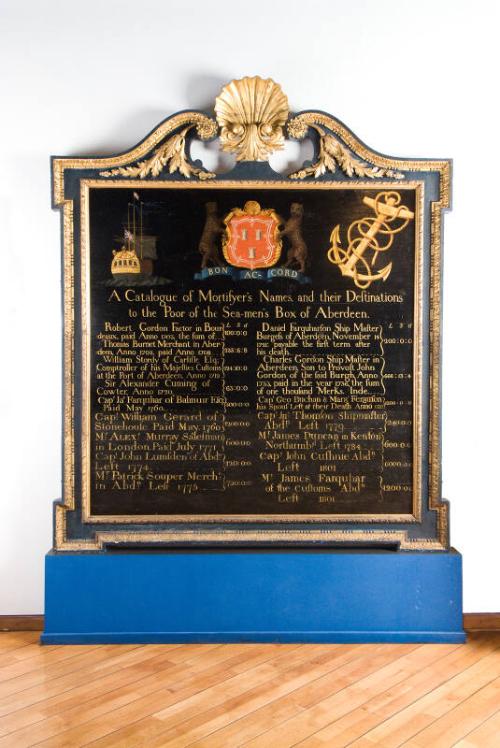 BON AC- CORD
A Catalogue of Mortifyer's Names, and their Destinations
to the Poor of the Sea-men's Box of Aberdeen.
L S d
Robert Gordon Factor in Bour
deaux, paid Anno 1703, the sum of
Thomas Burnet Merchant in Aber
deen, Anno 1705, paid Anno
William Stordy of Carlisle Esq.
Comptroller of his Majesties Customs
at the Port of Aberdeen, Anno
Sir Alexander Cuming of
Anno 1720
Capt Jas Farquhar of Balmuir Esq.
Paid May 1760
Capt William Gerard of
Stonehouse Paid May, 1760
Mr Alexr Murray Sailsman
in London Paid July 1771
Capt John Lumsden of Abdn
Left 1774
Mr Patrick Souper Merch.
in Abdn Left 1775
L S d
Daniel Farquharson Ship Master
Burges of Aberdeen, November
payable the first term after
his death
Charles Gordon Ship Master in
Aberdeen, Son to Provost John
Gordon of the said Burgh, Anno
paid in the year the sum
of one thousand Merks. Inde
Capt Geo Buchan & Mary Ferguson
his Spouse Left at their Death Anno
Capt Jas Thomson Shipmaster
Abdn Left 1779
Mr James Duncan in Kenton
Northumbd Left 1784
Capt John Cushnie Abdn
Left 1801
Mr James Farquhar
of the Customs Abdn
Left 1801
1200:0:0